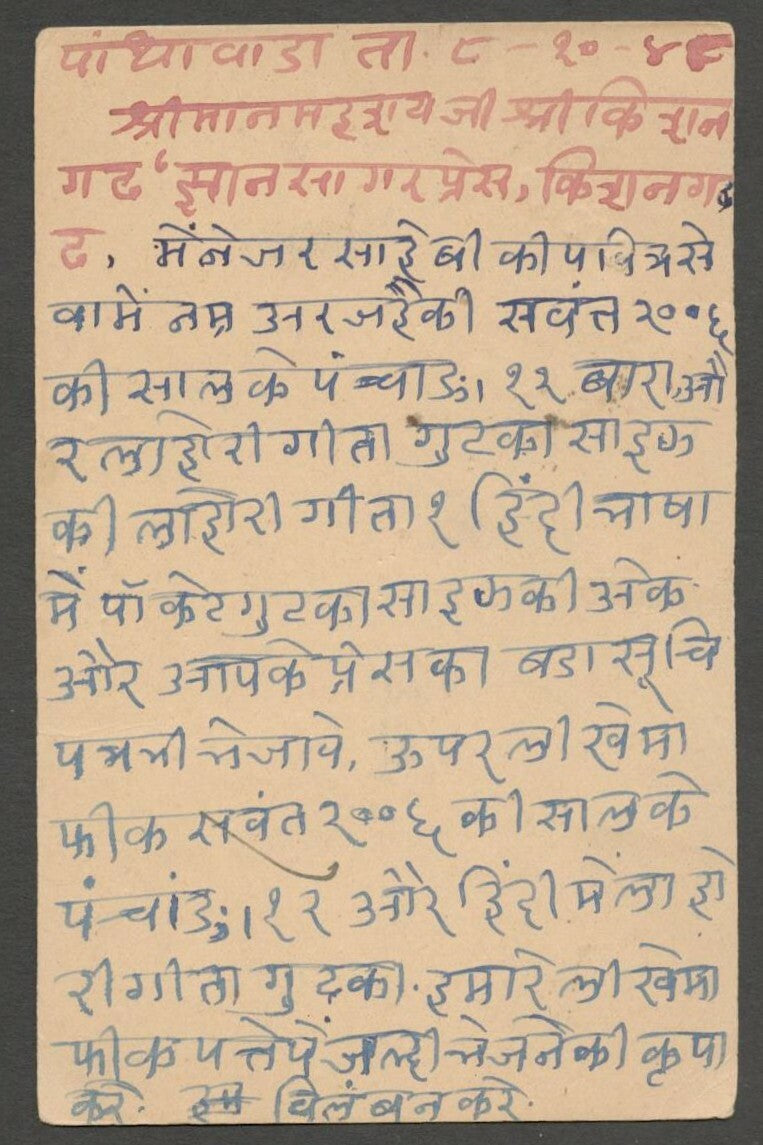 पांथावाडा ता. ८-१०-४८
श्रीमान महाशय जी श्री किशन
गढ 'ज्ञान सागर प्रेस, किशनग
ढ, मेंनेजर साहेबी की पवित्र से
वामें नम्र अरज है की सवंत २००६
की साल के पंञ्चाङ । १२ बारा, औ
र लाहोरी गीता गुटका साइज
की लाहोरी गीता १ हिंदी भाषा
में पॉकेट गुटका साइज की अेक
और आपके प्रेस का बडा सूचि
पत्र भी भेजावे, ऊपर लीखे मा
फीक सवंत २००६ की साल के
पंञ्चांङ । १२ और हिंदी में लाहो
री गीता गुटका. हमारे लीखे मा
फीक पत्तेपें जल्दी भेजने की कृपा
करे. विलंब न करे.